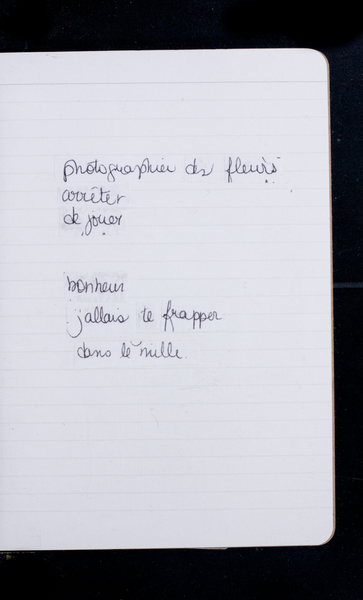 photographier des fleurs
arrêter
de jouer
bonheur
j'allais te frapper
dans le mille